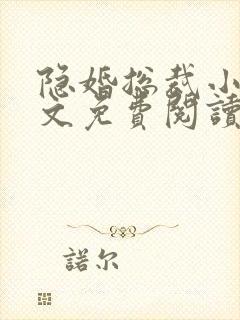 隐婚总裁小
文免費閱讀
諾尔